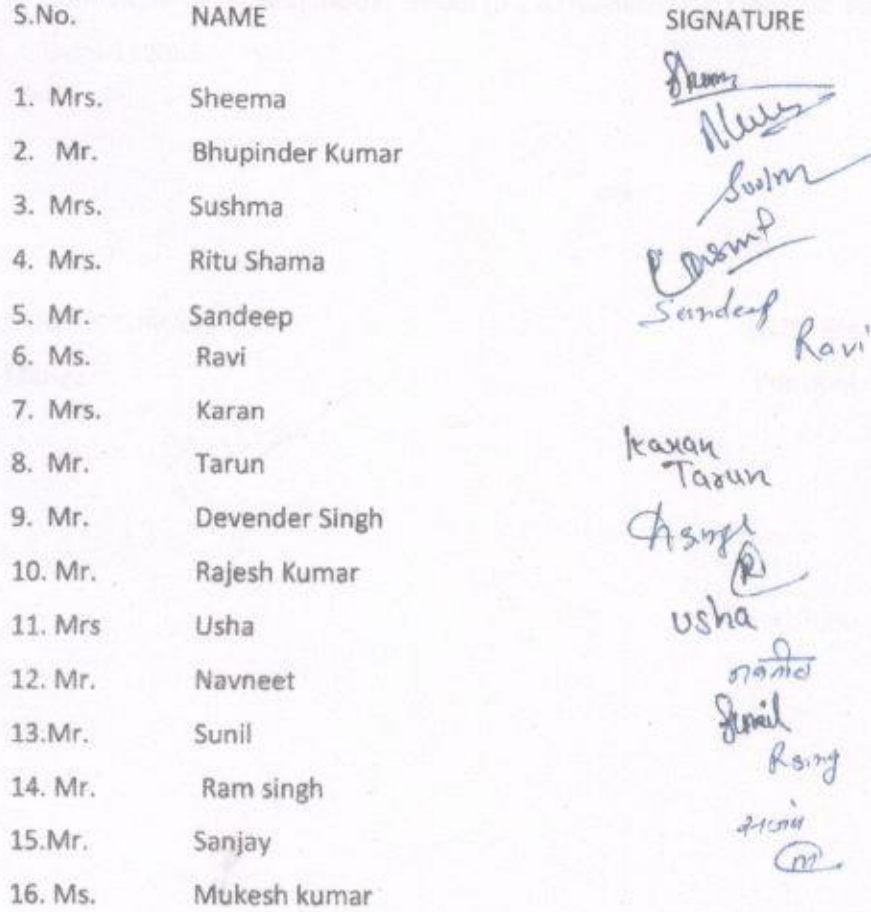 S.No. NAME SIGNATURE
1. Mrs. Sheema
2. Mr. Bhupinder Kumar
3. Mrs. Sushma
4. Mrs. Ritu Shama
5. Mr. Sandeep Sandeep
6. Ms. Ravi Ravi
7. Mrs. Karan Karan
8. Mr. Tarun Tarun
9. Mr. Devender Singh
10. Mr. Rajesh Kumar R
11. Mrs Usha Usha
12. Mr. Navneet
13.Mr. Sunil Sunil
14. Mr. Ram singh RSing
15.Mr. Sanjay
16. Ms. Mukesh kumar m